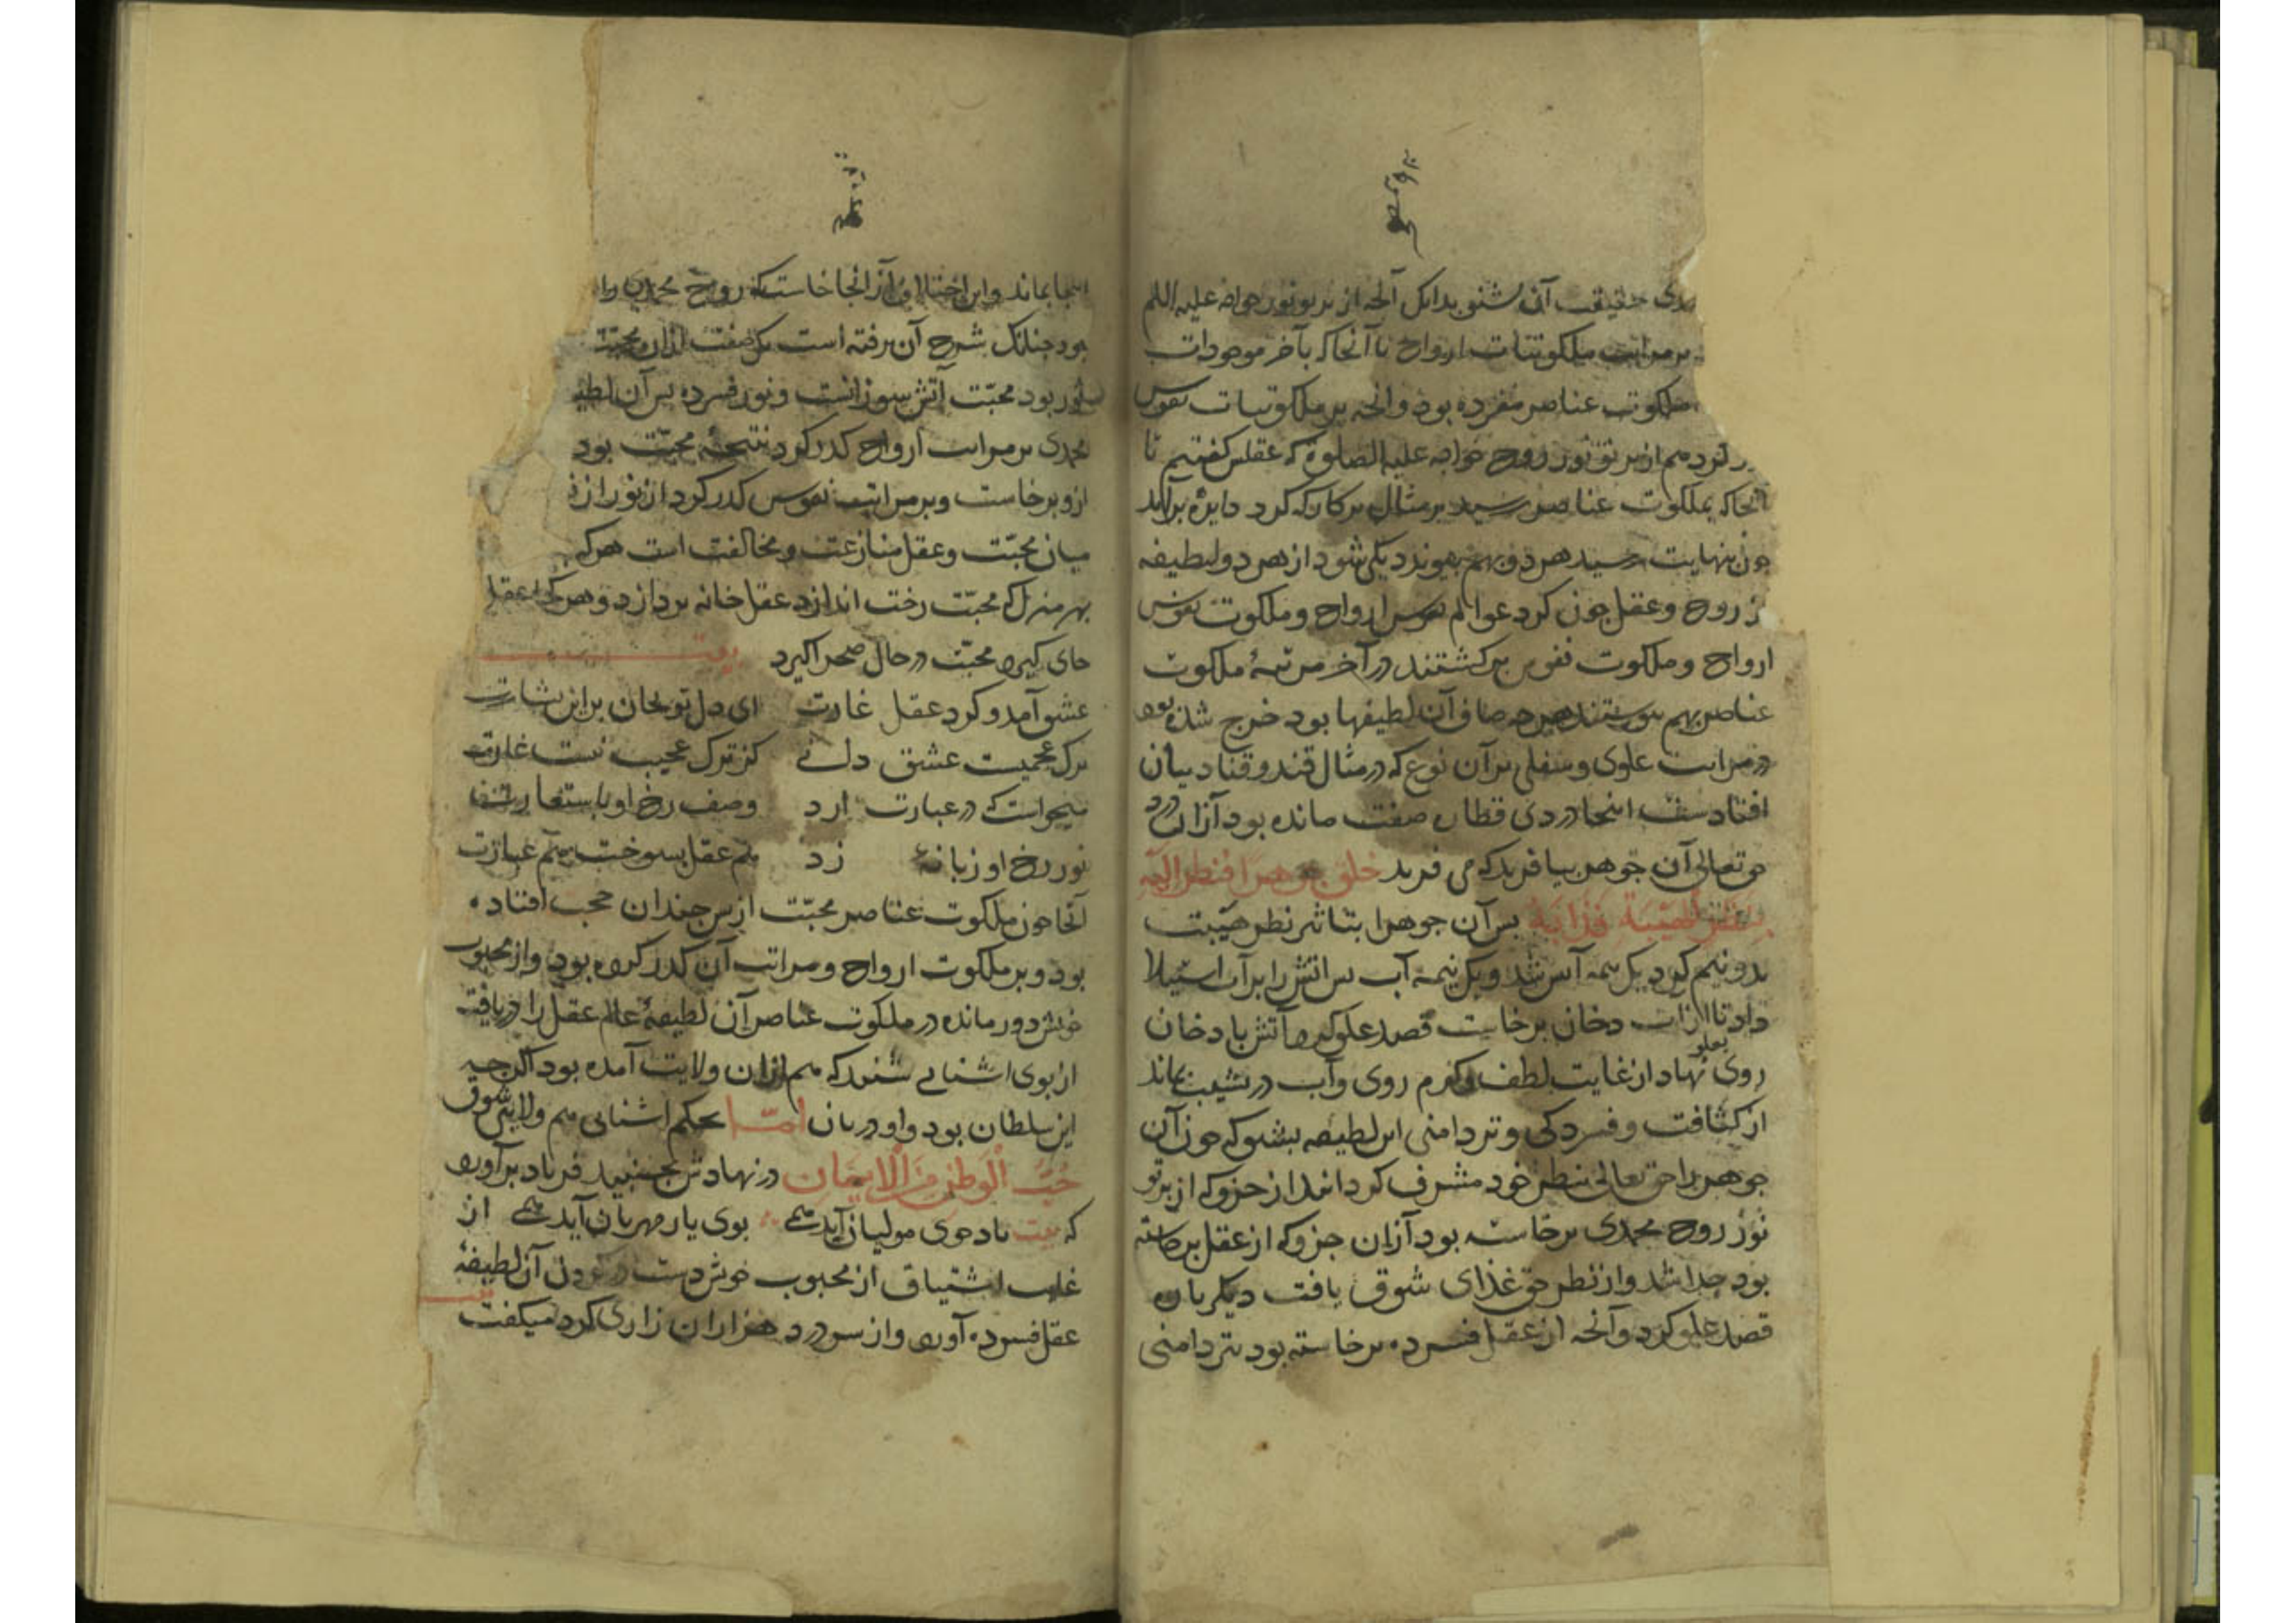 حقیقت آن بشنو بدانک آنچه از پرتو نور خواجه علیه السلم
بر مراتب ملکوتیات ارواح تا آنجا که بآخر موجودات
ملکوت عناصر مفرده بود و آنچه بر ملکوتیات نفوس
کرد هم از پرتو نور روح خواجه علیه الصلوة که عقلش کفتیم تا
آنجا که بملکوت عناصر رسید بر مثال برکار که کرد دایره برآید
جون بنهایت رسید هر دو بهم بیوندد یکی شود از هر دو لطیفه
روح و عقل جون کرد عوالم نفوس ارواح و ملکوت نفوس
ارواح و ملکوت نفوس برکشتند در آخر مرتبهٔ ملکوت
عناصر بهم بیوستند هرجه صاف آن لطیفها بود خرج شده بود
در مراتب علوی و سفلی بر آن نوع که در مثال قند و قناد بیان
افتادست اینجا دردی قطاره صفت مانده بود از آن درد
حق تعالی آن جوهر بیافرید که می فرمد خلق جوهرا فنظر الیه
بنظر الهیبة فذابه بس آن جوهر را بتاثیر نظر هیبت
بدو نیم کرد یک نیمه آتش شد و یک نیمه آب بس آتش را بر آب استیلا
داد تا از آب دخان برخاست قصد علو کرد و آتش با دخان
روی بعلو نهاد از غایت لطف و کرم روی و آب در نشیب بماند
از کثافت و فسردکی و تر دامنی این لطیفه بشنو که جون آن
جوهر را حق تعالی بنظر خود مشرف کردانید از جزوکه از پرتو
نور روح محمدی برخاسته بود از آن جزو که از عقل برخاسته
بود جدا شد و از نظر حق غذای شوق یافت دیکر باره
قصد علو کرد و آنچه از عقل فسرده برخاسته بود بتر دامنی
اینجا بماند و این اختلاف از آنجا خاست که روح محمدی را
بود جنانک شرح آن رفته است یک صفت از آن محبت
نور بود محبّت آتش سوزانست و نور فسرده بس آن لطیفه
محمدی بر مراتب ارواح کذر کرد نتیجهٔ محبّت بود
ازو برخاست و بر مراتب نفوس کذر کرد از نور از
میان محبّت و عقل منازعت و مخالفت است هرکه
بهر منزل که محبّت رخت اندازد عقل خانه بردازد و هر کجا عقل
جای کیرد محبّت در حال صحرا کیرد بیت
عشق آمد و کرد عقل غارت ای دل تو بجان بر این بشارت
ترک عجمیست عشق دانی کز ترک عجیب نیست غارت
میخواست که در عبارت آرد وصف رخ او باستعارت
نور رخ او زبانهٔ زد هم عقل بسوخت هم عبارت
آنجا جون ملکوت عناصر محبّت از بس جندان حجب افتاده
بود و بر ملکوت ارواح و مراتب آن کذر کرده بود و از محبوب
خویش دور مانده در ملکوت عناصر آن لطیفهٔ عالم عقل را دریافت
از بوی اشنائی شنود که هم از آن ولایت آمده بود اکرجه
این سلطان بود و او دربان امّا بحکم اشنائی هم ولایتی شوق
حُبُّ الْوَطَنِ مِنَ الْاِیمَان در نهادش بجنبید فریاد برآورد
که بیت باد جوی مولیان آید همی بوی یار مهربان آید همی از
غلبه اشتیاق از محبوب خویش دست در کردن آن لطیفهٔ
عقل فسرده آورد و از سر درد هزاران زاری کرد میکفت بیت